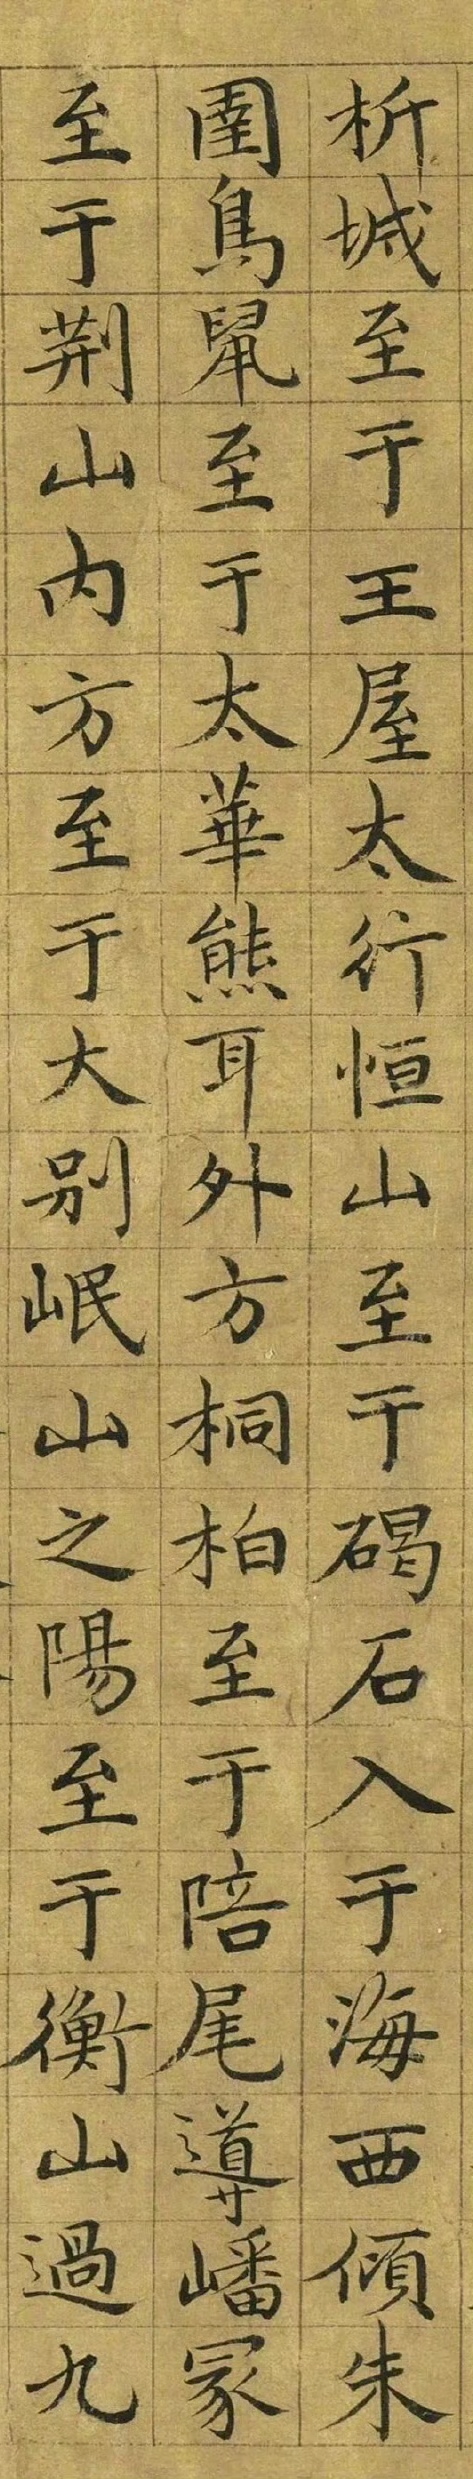 析城至于王屋太行恒山至于碣石入于海西傾朱
圉鳥鼠至于太華熊耳外方桐柏至于陪尾導嶓冢
至于荆山内方至于大别岷山之陽至于衡山過九